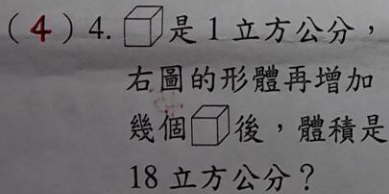 (4) 4. 是 1 立方公分，
右圖的形體再增加
幾個後，體積是
18 立方公分？